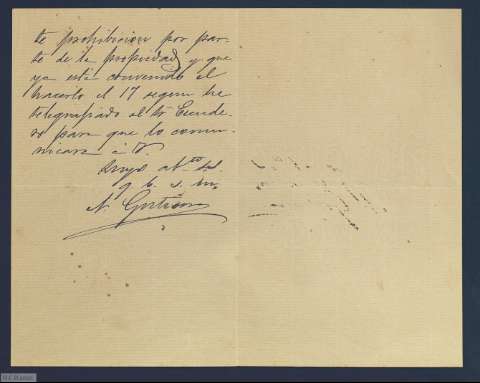 te prohibicion por par-
te de la propiedad y que
ya está convenido el
hacerlo el 17 segun he
telegrafiado al Sr Escude-
ro para que lo comu-
nicara á V.
Suyo af.mo S.
q b. s. m.
N.